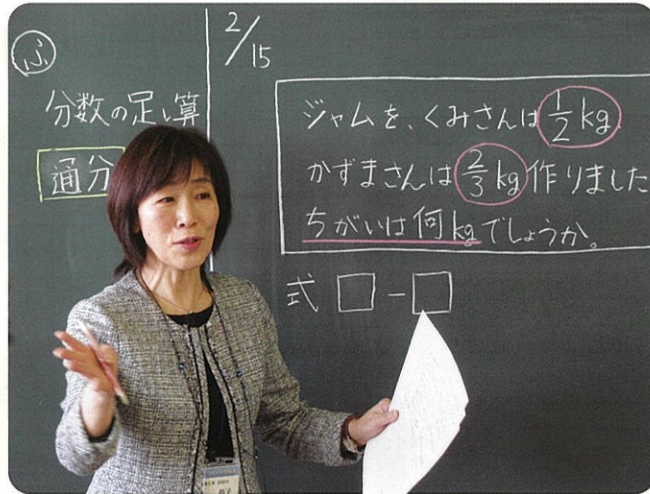 ふ
分数の足し算
通分
2/15
ジャムを、くみさんは1/2kg、
かずまさんは2/3kg作りました
ちがいは何kgでしょうか。
式 □-□